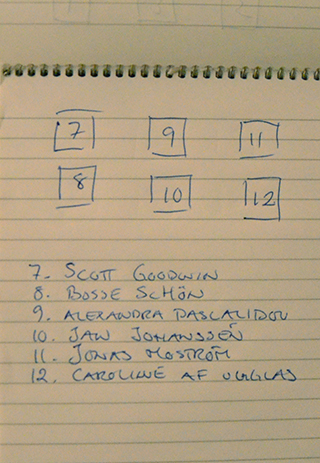 7 9 11
8 10 12
7. SCOTT GOODWIN
8. BOSSE SCHÖN
9. ALEXANDRA PASCALIDOU
10. JAN JOHANSSÉN
11. JONAS MOSTRÖM
12. CAROLINE AF UGGLAS